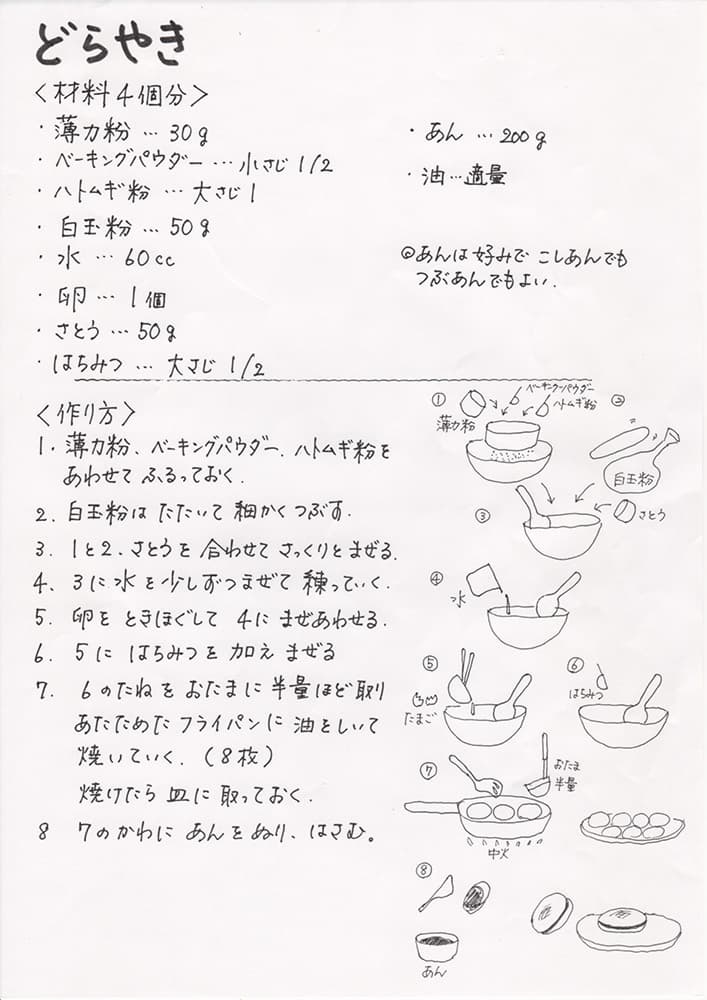 どらやき
〈材料4個分〉
・薄力粉…30g
・ベーキングパウダー…小さじ1/2
・ハトムギ粉…大さじ1
・白玉粉…50g
・水…60cc
・卵…1個
・さとう…50g
・はちみつ…大さじ1/2
・あん…200g
・油…適量
◎あんは好みでこしあんでも
つぶあんでもよい.
〈作り方〉
1.薄力粉、ベーキングパウダー、ハトムギ粉を
あわせてふるっておく.
2.白玉粉はたたいて細かくつぶす.
3.1と2、さとうを合わせてさっくりとまぜる.
4、3に水を少しずつまぜて練っていく.
5.卵をときほぐして4にまぜあわせる.
6.5にはちみつを加えまぜる
7.6のたねをおたまに半量ほど取り
あたためたフライパンに油をしいて
焼いていく.(8枚)
焼けたら皿に取っておく.
8 7のかわにあんをぬり、はさむ。
①
ベーキングパウダー
ハトムギ粉
薄力粉
②
白玉粉
③
さとう
④
水
⑤
たまご
⑥
はちみつ
⑦
おたま
半量
中火
⑧
あん